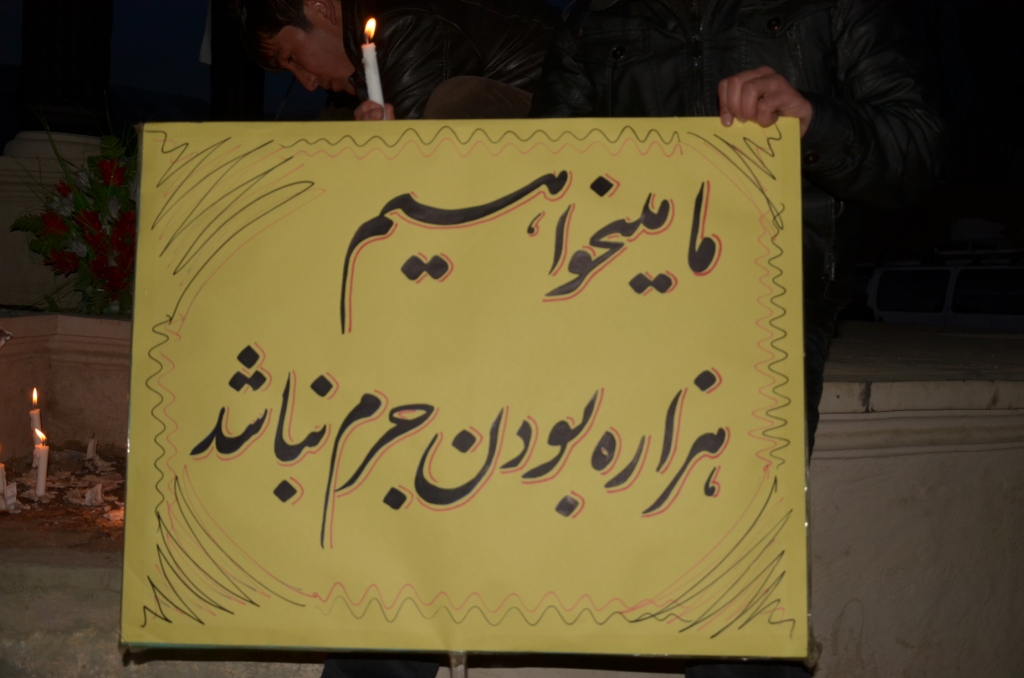 ما میخواهیم
هزاره بودن جرم نباشد